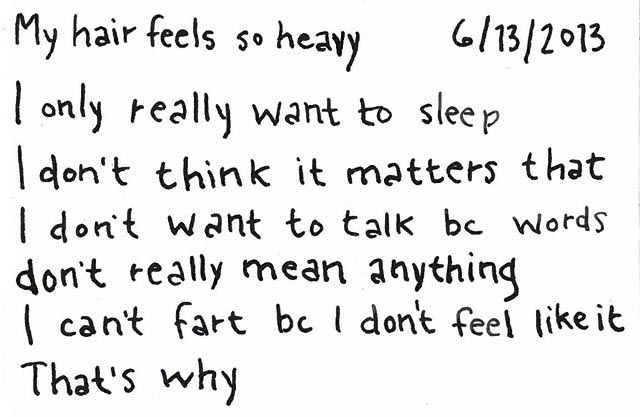 My hair feels so heavy 6/13/2013
I only really want to sleep
I don't think it matters that
I don't want to talk bc words
don't really mean anything
I can't fart bc I don't feel like it
That's why